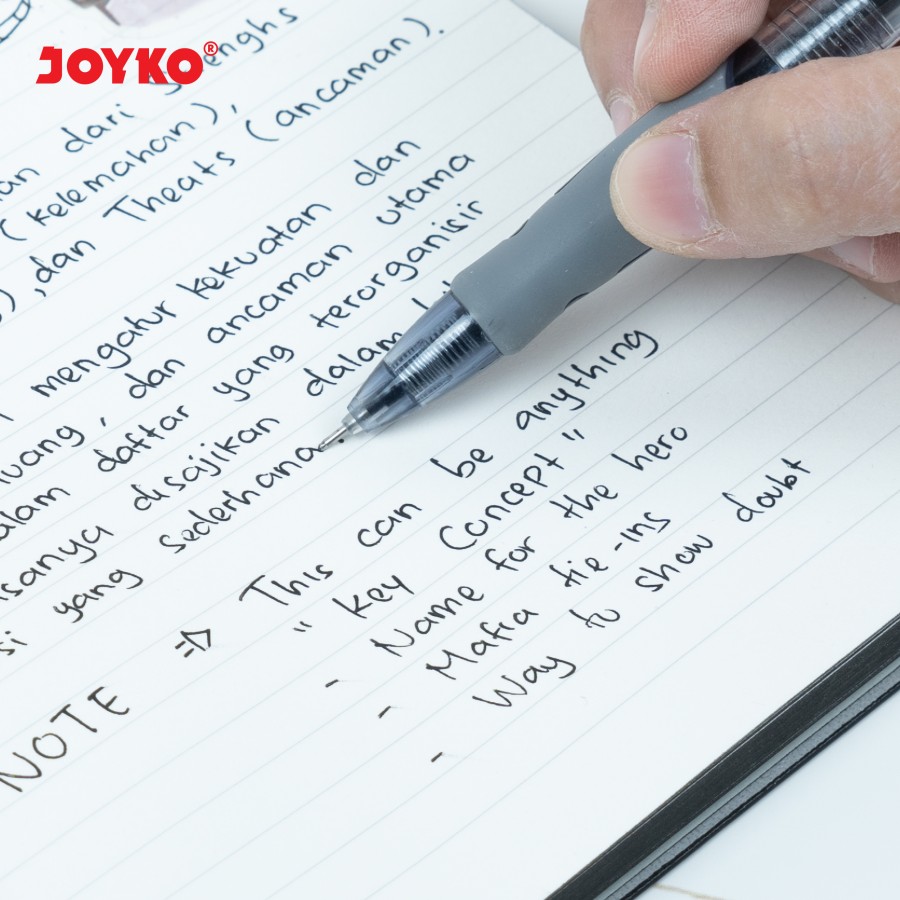 JOYKO®
dari
(kelemahan),
, dan Theats (ancaman).
mengatur kekuatan dan
, dan ancaman utama
daftar yang terorganisir
disajikan dalam
yang sederhana
NOTE ⇒ This can be anything
" Key Concept "
- Name for the hero
- Mafia tie-ins
- Way to show doubt